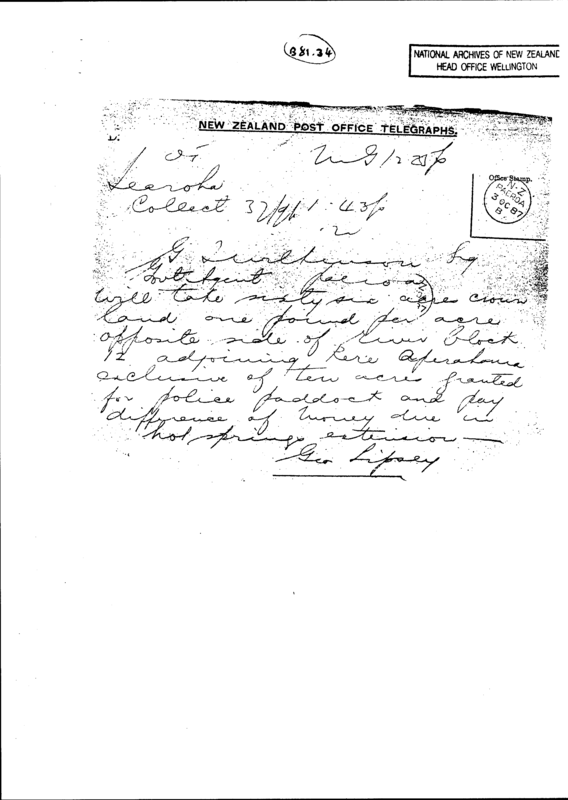 B 81.34
NATIONAL ARCHIVES OF NEW ZEALAND
HEAD OFFICE WELLINGTON
NEW ZEALAND POST OFFICE TELEGRAPHS.
Office Stamp.
N-Z
PAEROA
3 OC 87
Tearoha
Collect
Esq
Govt Agent Paeroa
will take sixty six acres crown
land one pound per acre
opposite side of river block
12 adjoining Kere Aperahama
exclusive of ten acres granted
for police paddock and pay
difference of money due in
hot springs extension —
Geo Lipsey